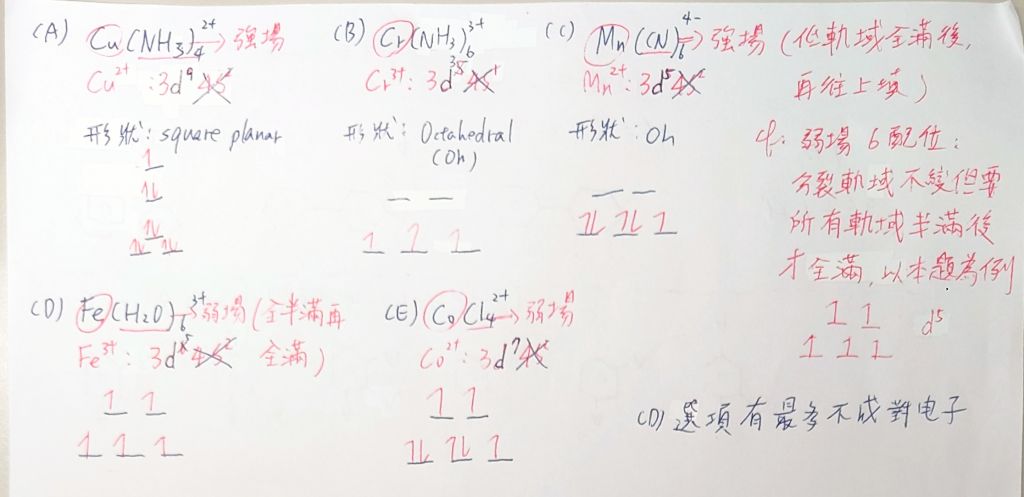 (A) Cu(NH3)4 2+ → 強場
Cu2+ : 3d9 4s2
形狀 : square planar
1
1L
1L
1L 1L
(B) Cr(NH3)6 3+
Cr3+ : 3d3 4s1
形狀 : Octahedral
(Oh)
1 1 1
(C) Mn(CN)6 4- → 強場 (但軌域全滿後,
再往上填)
Mn2+ : 3d5 4s2
形狀 : Oh
1L 1L 1
cf. 弱場 6 配位 :
分裂軌域不變但要
所有軌域半滿後
才全滿, 以本題為例
1 1
1 1 1
d5
(D) Fe(H2O)6 3+ → 弱場 (全半滿再
全滿)
Fe3+ : 3d5 4s2
1 1
1 1 1
(E) CoCl4 2+ → 弱場
Co2+ : 3d7 4s2
1 1
1L 1L 1
(D) 選項有最多不成對电子